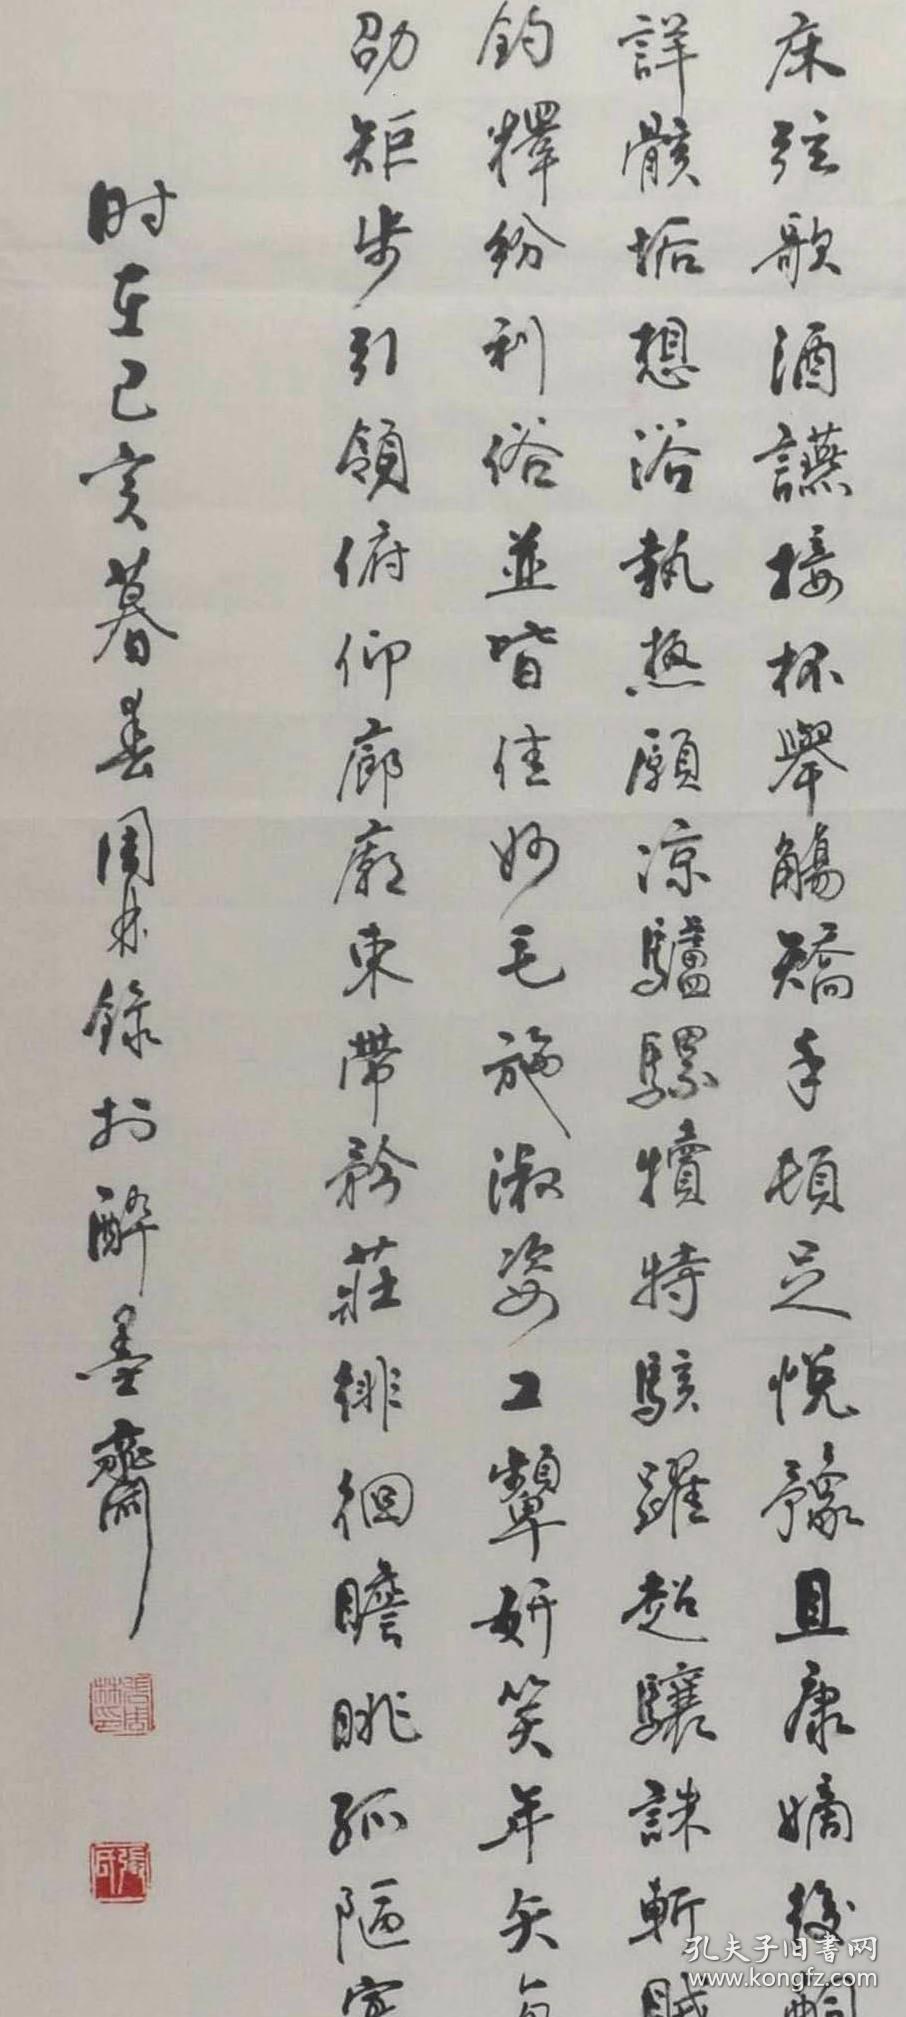 床弦歌酒讌接杯舉觴矯手頓足悅豫且康嫡後嗣
詳骸垢想浴執熱願涼驢騾犢特駭躍超驤誅斬賊
鈞釋紛利俗並皆佳妙毛施淑姿工顰妍笑年矢每
劭矩步引領俯仰廊廟束帶矜莊徘徊瞻眺孤陋寡
时在己亥暮春周林錄於醉墨齋
張周林印
張
孔夫子旧書网
www.kongfz.com